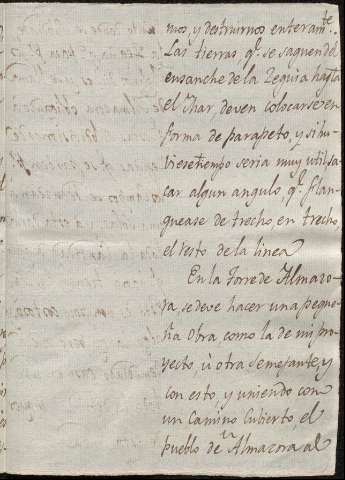 mos, y destruirnos enteramte.
Las tierras q.e se saquen del
ensanche de la Zequia hasta
el Mar, deven colocarse en
forma de parapeto, y si hu-
viese tiempo seria muy util sa
car algun angulo q.e flan-
quease de trecho, en trecho
el resto de la linea
En la Torre de Almazo-
ra, se deve hacer una peque-
ña obra como la de mi pro-
yecto, ú otra semejante, y
con esto y uniendo con
un Camino Cubierto el
pueblo de Almazora al